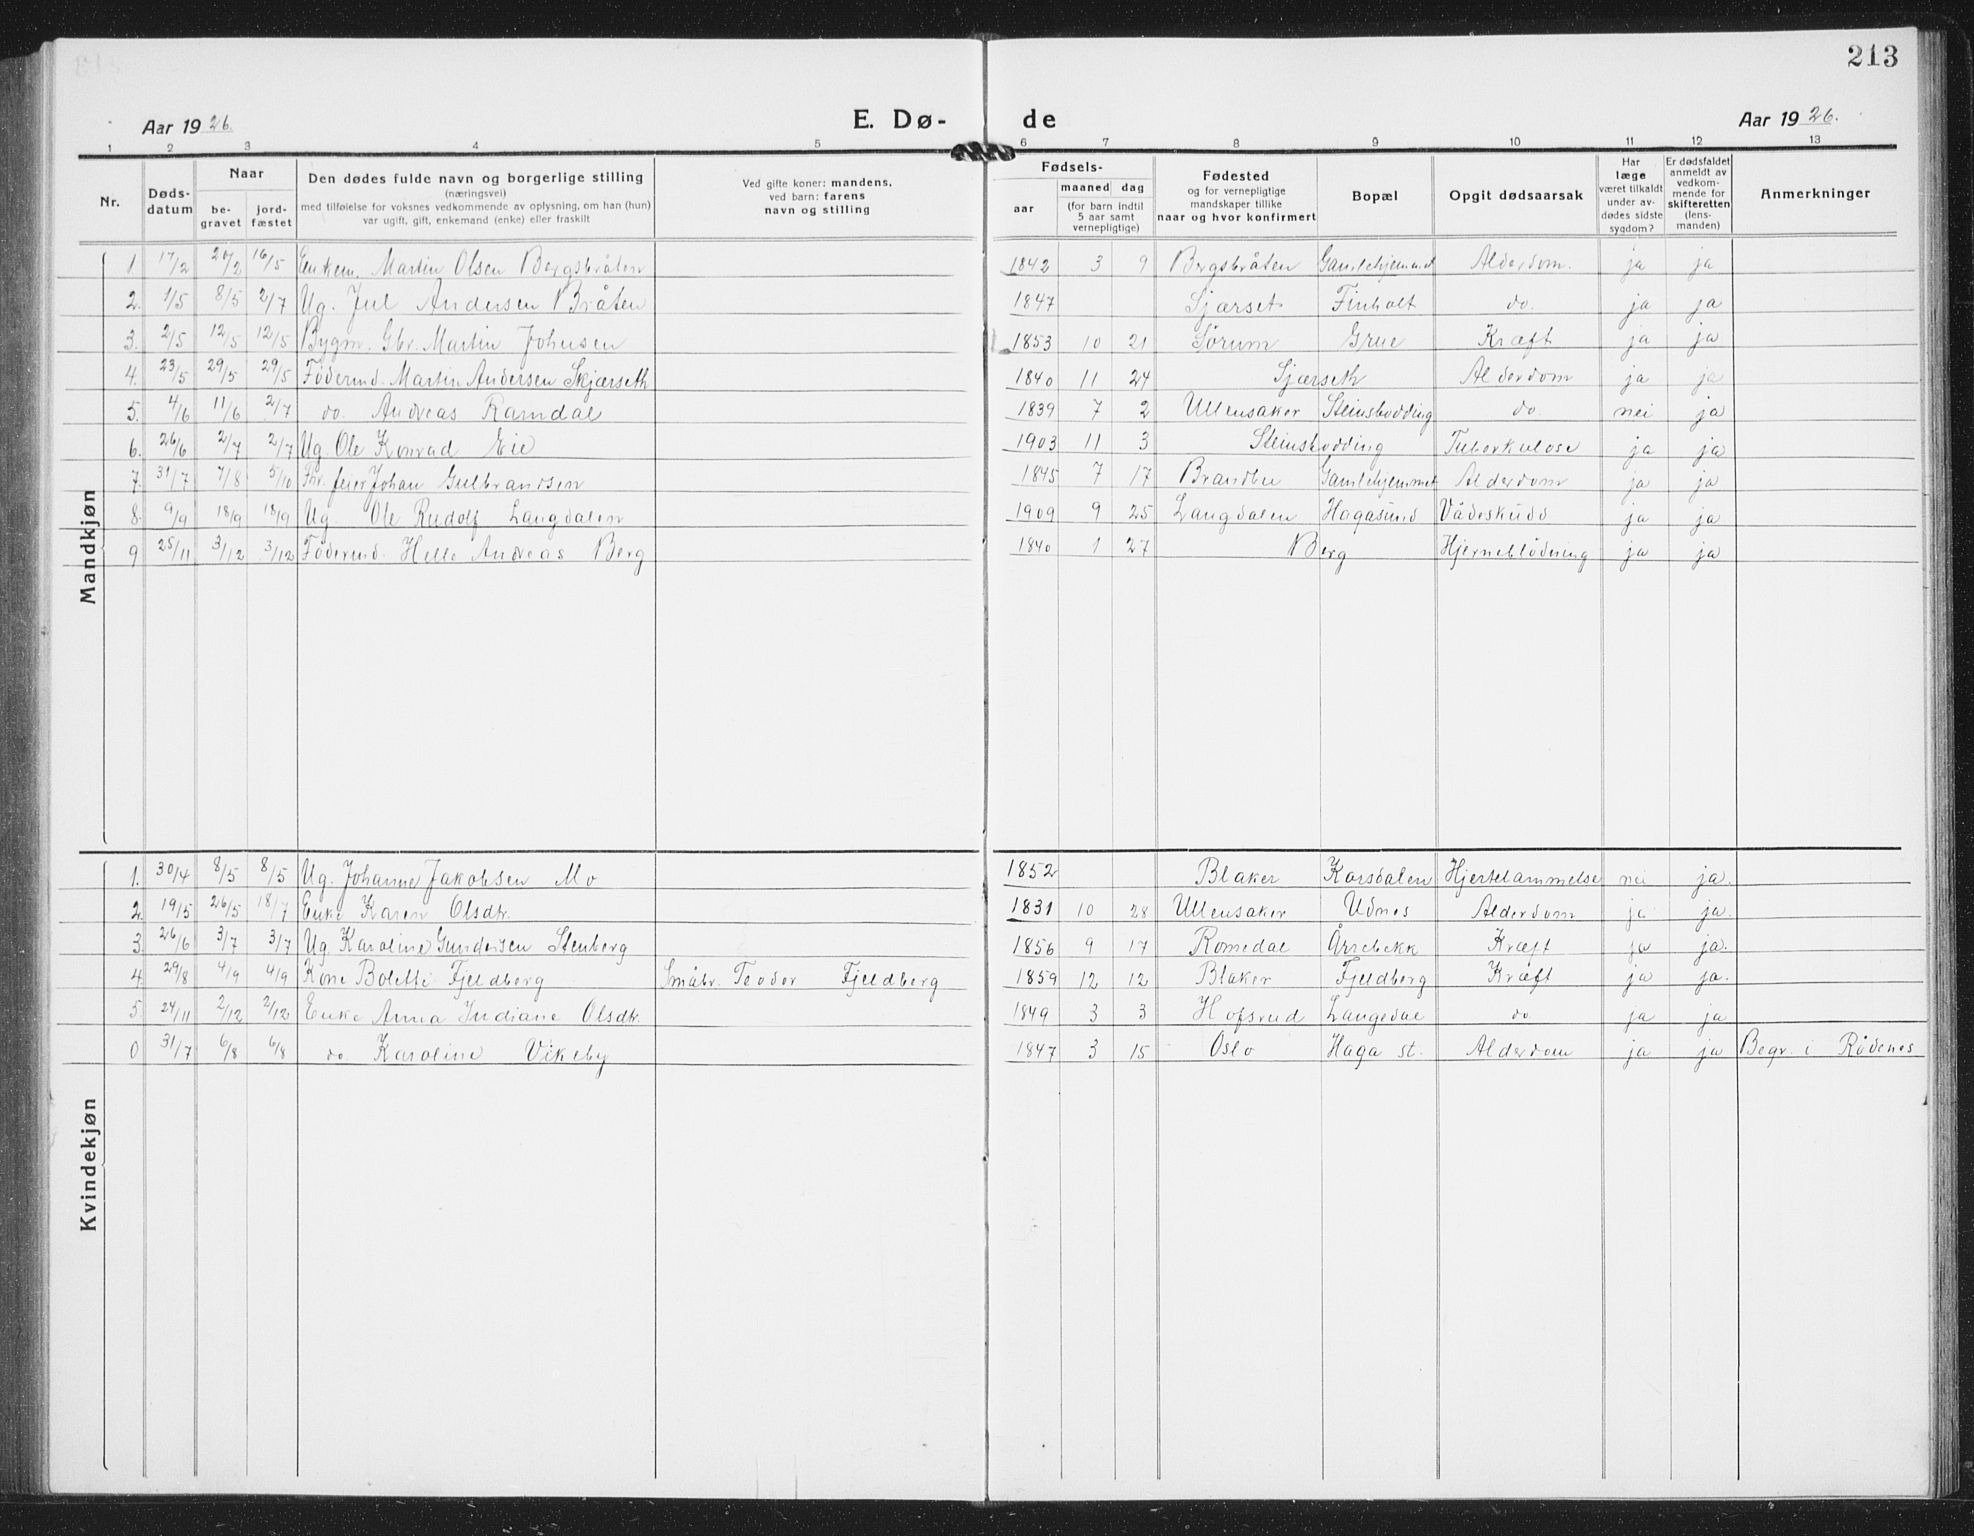 213
Aar 1926. E. Dø- de Aar 1926.
1 2 3 4 5 6 7 8 9 10 11 12 13
Nr. Døds-datum Naar be-gravet jord-fæstet Den dødes fulde navn og borgerlige stilling (næringsvei) med tilføielse for voksnes vedkommende av oplysning, om han (hun) var ugift, gift, enkemand (enke) eller fraskilt Ved gifte koner: mandens, ved barn: farens navn og stilling Fødsels- aar maaned dag (for barn indtil 5 aar samt vernepligtige) Fødested og for vernepligtige mandskaper tillike naar og hvor konfirmert Bopæl Opgit dødsaarsak Har læge været tilkaldt under av-dødes sidste sygdom? Er dødsfaldet anmeldt av vedkom-mende for skifteretten (lens-manden) Anmerkninger
Mandkjøn
1. 17/2 20/2 16/5 Enkem. Martin Olsen Bergsbråten 1842 3 9 Bergsbråten Gamlehjemmet Alderdom. ja ja
2. 1/5 8/5 2/7 Ug. Jul Andersen Bråten 1847 Sjærset Finholt do. ja ja
3. 2/5 12/5 12/5 Bygm. Gbr. Martin Johnsen 1853 10 21 Sørum Grue Kræft ja ja
4. 23/5 29/5 29/5 Födermd. Martin Andersen Skjærseth 1840 11 24 Sjærseth Alderdom ja ja
5. 4/6 11/6 2/7 do. Andreas Ramdal 1839 7 2 Ullensaker Steinsbodding do. nei ja
6. 26/6 2/7 2/7 Ug. Ole Konrad Eie 1903 11 3 Steinsbodding Tuberkulose ja ja
7. 31/7 7/8 5/10 feier Johan Gulbrandsen 1845 7 17 Brandbu Gamlehjemmet Alderdom ja ja
8. 9/9 18/9 18/9 Ug. Ole Rudolf Langdalen 1909 9 25 Langdalen Hagasund Vådeskudd ja ja
9 25/11 3/12 3/12 Födermd. Helle Andreas Berg 1840 1 27 Berg Hjerneblödning ja ja
Kvindekjøn
1. 30/4 8/5 8/5 Ug. Johanne Jakobsen Mo 1852 Blaker Korsdalen Hjertelammelse nei ja.
2. 19/5 26/5 18/7 Enke Karen Olsdtr. 1831 10 28 Ullensaker Udnes Alderdom ja ja.
3. 26/6 3/7 3/7 Ug Karoline Gundersen Stenberg 1856 9 17 Romedal Årnebekk Kræft ja ja.
4. 29/8 4/9 4/9 Kone Bolette Fjeldberg Småbr. Teodor Fjeldberg 1859 12 12 Blaker Fjeldberg Kræft ja ja.
5. 24/11 2/12 2/12 Enke Anna Indiane Olsdtr. 1849 3 3 Hofsrud Langedal do. ja ja
0 31/7 6/8 6/8 do. Karoline Vikeby 1847 3 15 Oslo Haga st. Alderdom ja ja Begr. i Rödenes